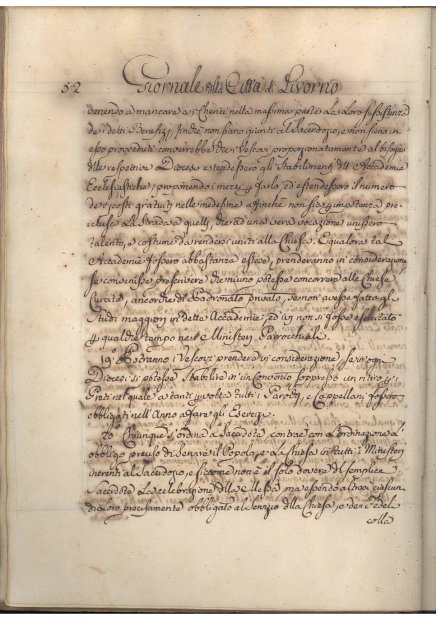 52 Giornale della Città di Livorno
venendo a mancare ai Cherici nella massima parte la loro sussistenza
de' detti Benefizj, finchè non siano giunti al Sacerdozio, e non sieno in
esso provveduti converrebbe che i Vescovi proporzionatamente al bisogno
delle respettive Diocesi estendessero gli Stabilimenti dell'Accademie
Ecclesiastiche, proponendo i mezzi per farlo, ed estendessero il numero
dei posti gratuiti nelle medesime affinchè non sia per mancanza pre-
clusa La Strada a quelli, che ad una vera vocazione unissero
talento, e costume da rendersi utili alla Chiesa. E qualora tali
Accademie fossero abbastanza estese, prenderanno in considerazione
se convenisse prescrivere che niuno potesse concorrere alle Chiese
Curate, ancorchè di Padronato privato, se non avesse fatto gli
Studi maggiori in dette Accademie, ed in non si fosse esercitato
per qualche tempo ne' Ministeri Parrocchiali.
19° Potranno i Vescovi prendere in considerazione se in ogni
Diocesi si potesse stabilire in un Convento soppresso un ritiro
Preti nel quale a tanti per volta tutti i Parochi, e Cappellani fossero
obbligati nell'Anno a fare gli Esercizj.
20° Chiunque s'ordina a Sacerdote, contrae con l'Ordinazione l'
obbligo preciso di servire il Popolo, e la Chiesa in tutti i Ministeri
inerenti al Sacerdozio, e siccome non è il solo dovere del semplice
Sacerdote La celebrazione della Messa, ma essendo altresì ciascun
di loro precisamente obbligato al servizio della Chiesa, e der
colla